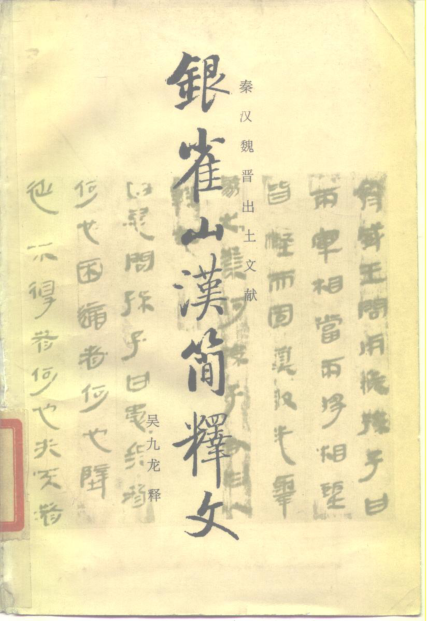 齊威王問用兵孫子曰
兩軍相當兩將相望
皆堅而固莫敢先舉
秦汉魏晋出土文献
銀雀山漢簡釋文
吴九龙 释
忌問孫子曰患兵者
何也困適者何也壁
不得者何也失天者